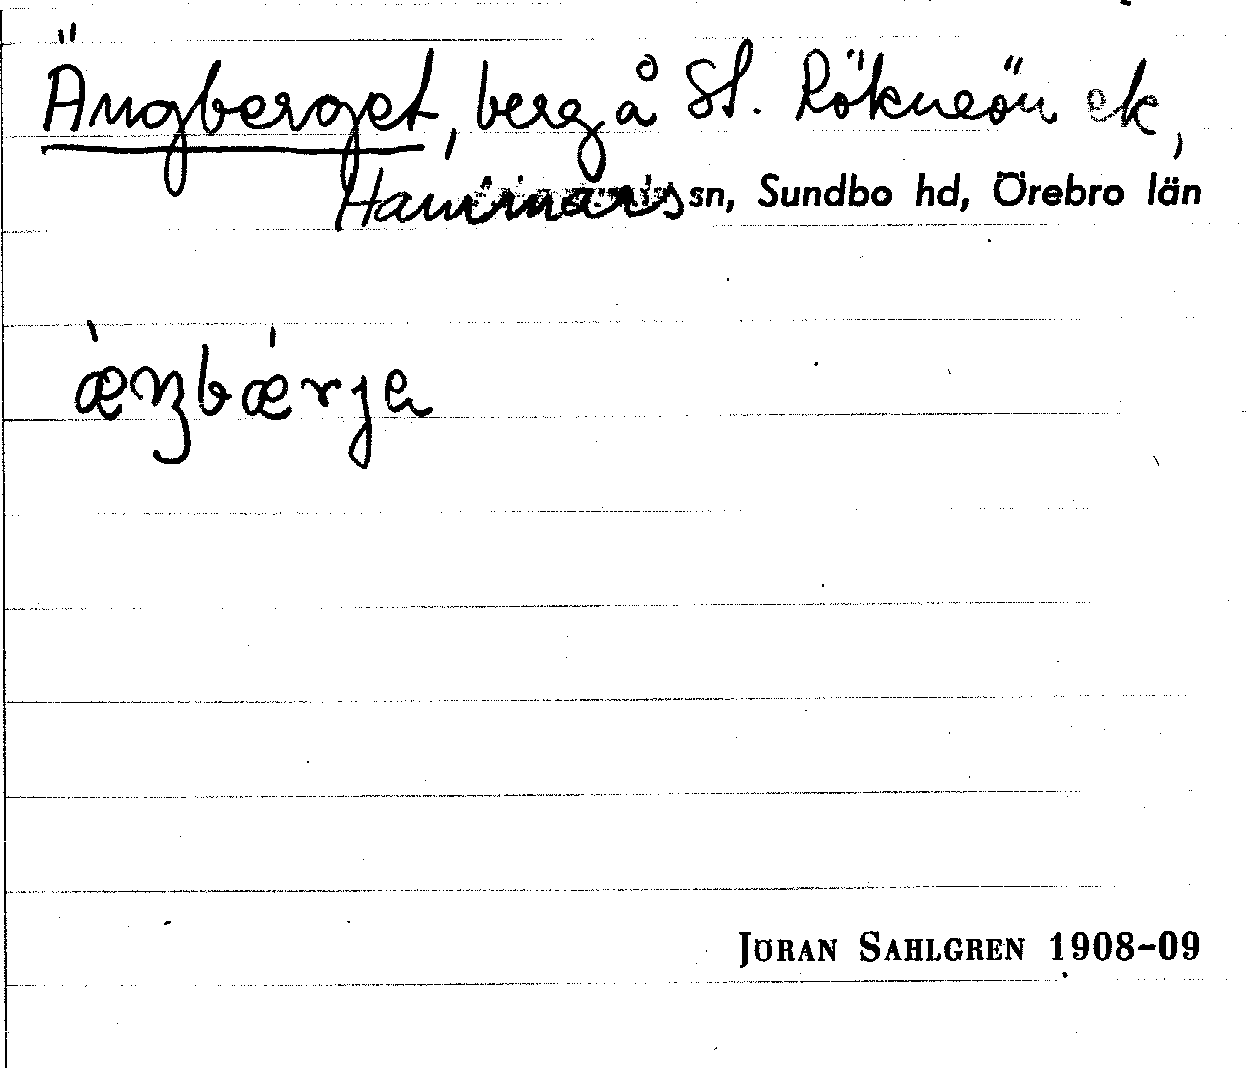 Ängberget, berg å St. Rökneön ek,
Hammars sn, Sundbo hd, Örebro län
æ̀ŋbǽrjə
JÖRAN SAHLGREN 1908-09